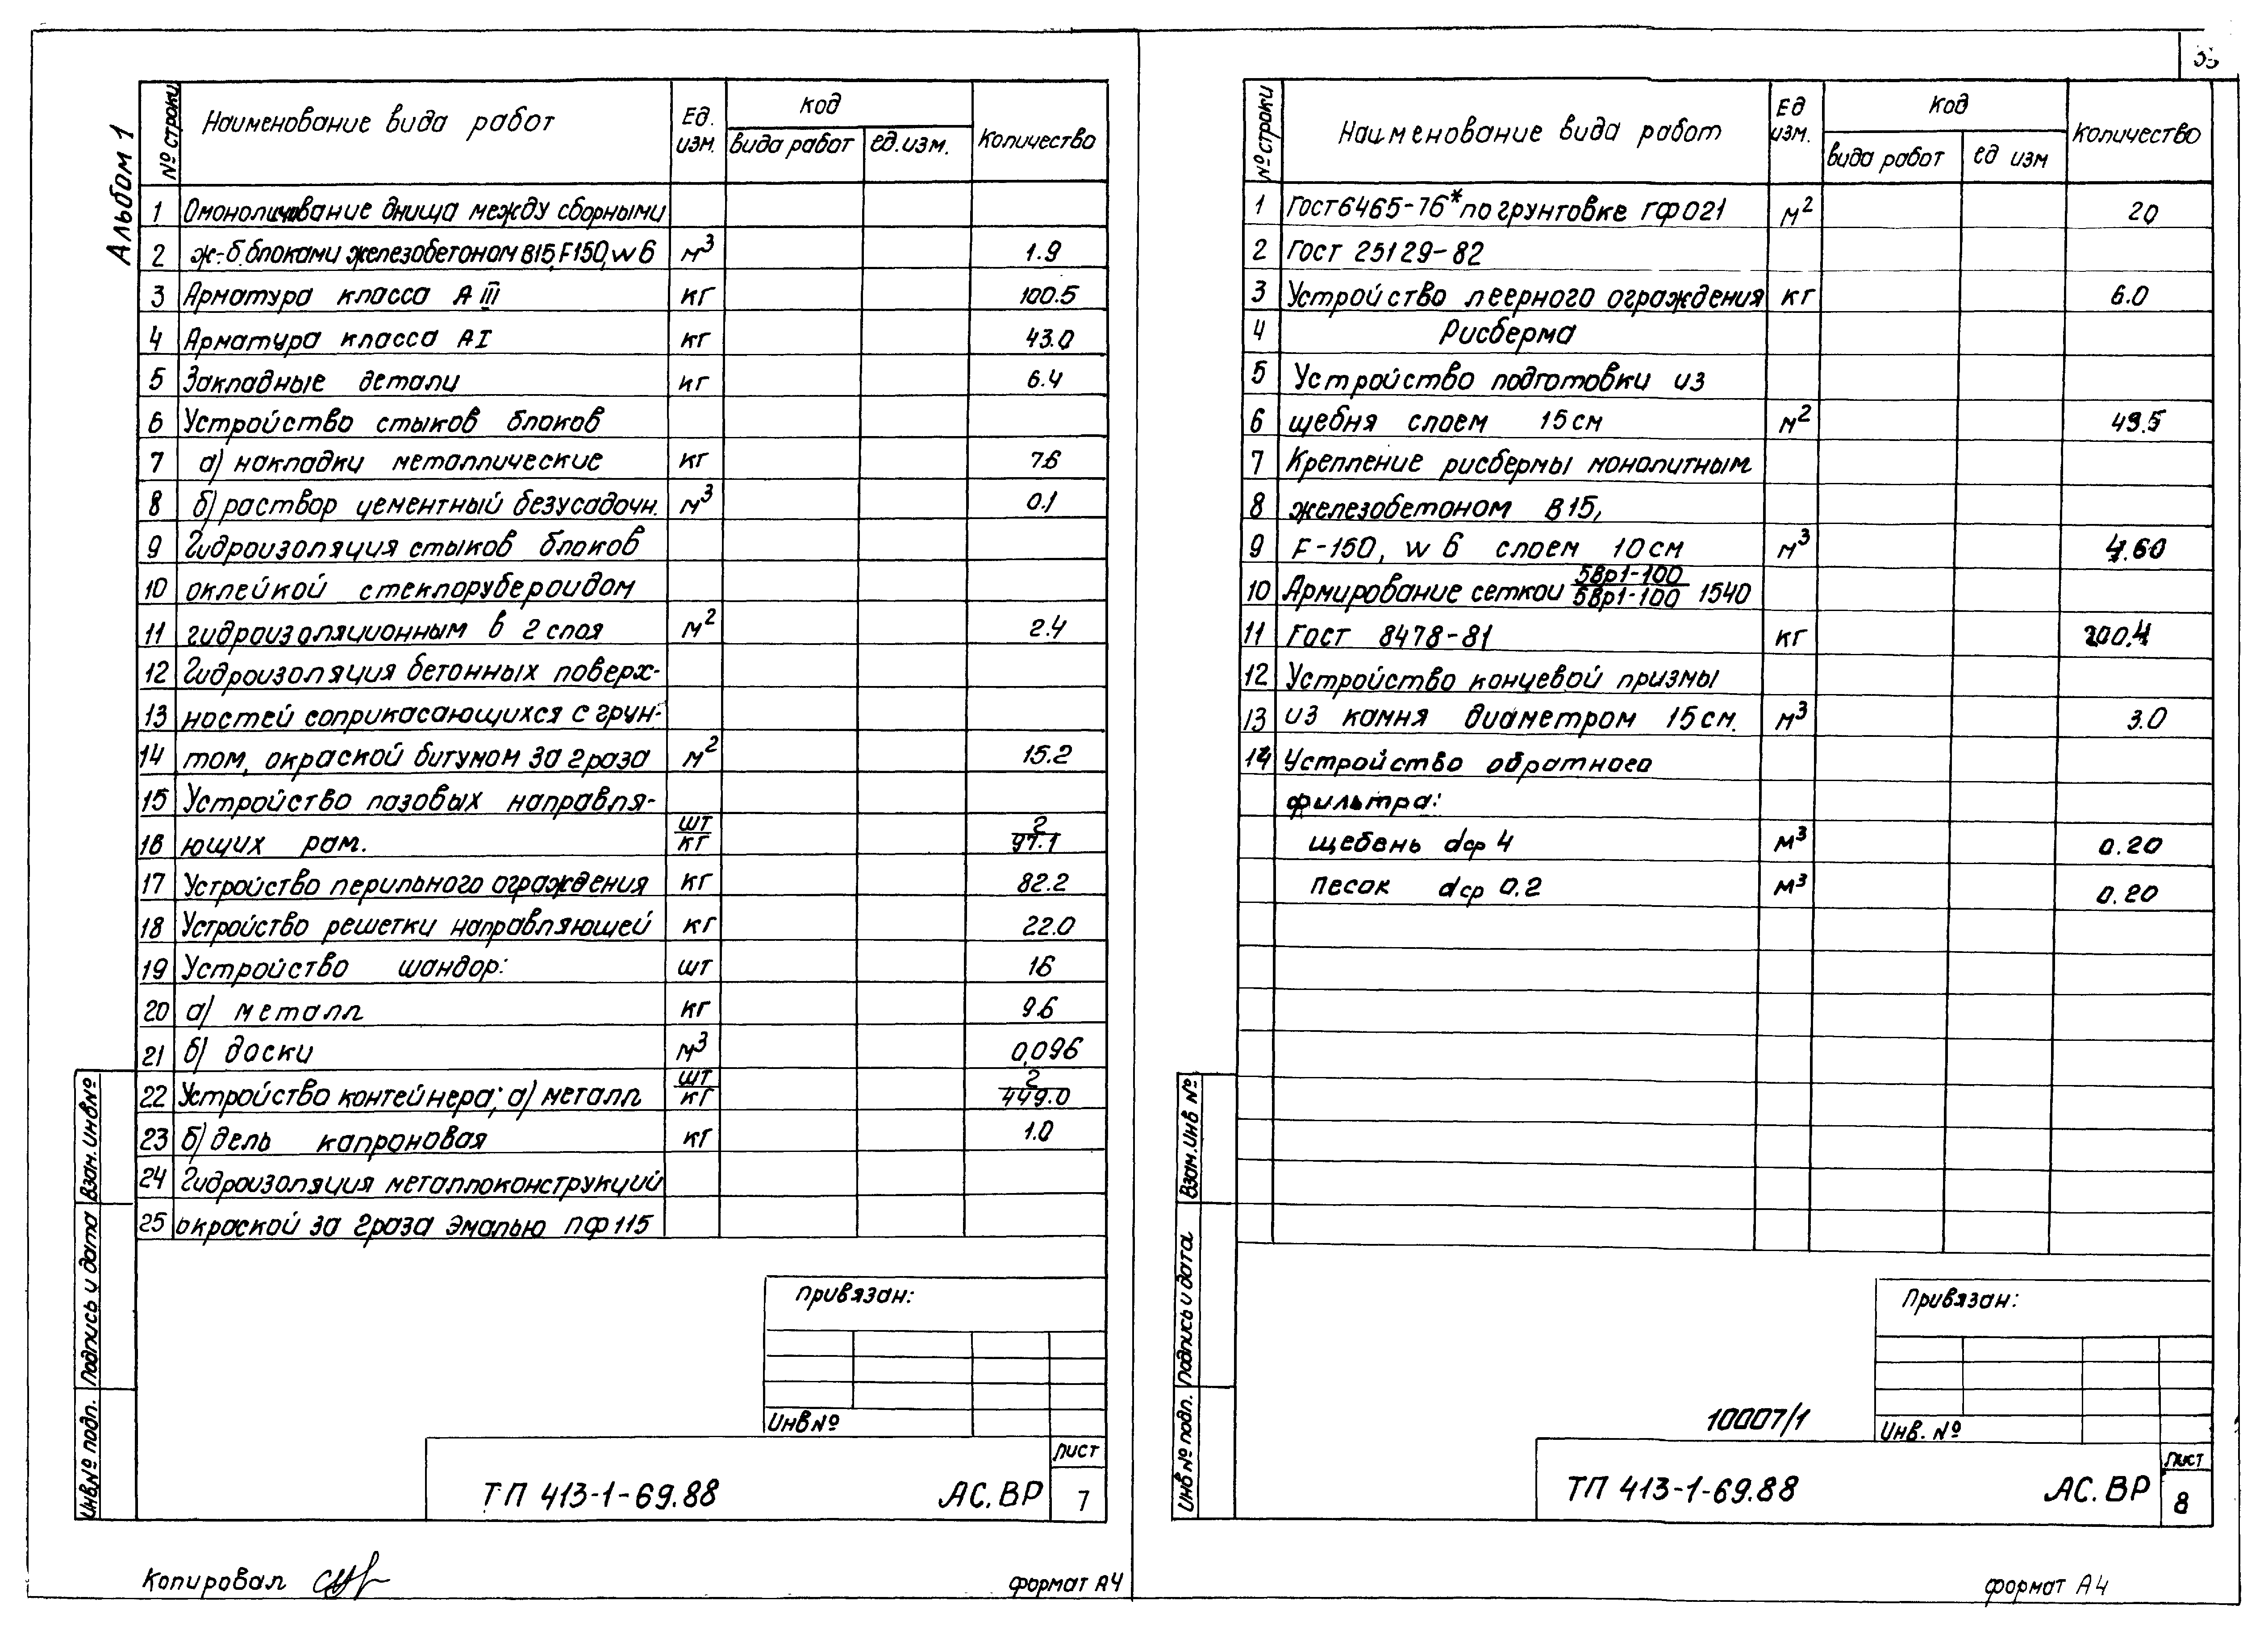 Альбом 1
№ строки Наименование вида работ Ед. изм. Код вида работ ед. изм. Количество
1 Омоноличивание днища между сборными
2 ж.-б. блоками железобетоном В15, F150, W6 м³ 1.9
3 Арматура класса АIII кг 100.5
4 Арматура класса АI кг 43.0
5 Закладные детали кг 6.4
6 Устройство стыков блоков
7 а) накладки металлические кг 7.6
8 б) раствор цементный безусадочн. м³ 0.1
9 Гидроизоляция стыков блоков
10 оклейкой стеклорубероидом
11 гидроизоляционным в 2 слоя м² 2.4
12 Гидроизоляция бетонных поверх-
13 ностей соприкасающихся с грун-
14 том, окраской битумом за 2 раза м² 15.2
15 Устройство пазовых направля-
16 ющих рам. шт/кг 2/97.1
17 Устройство перильного ограждения кг 82.2
18 Устройство решетки направляющей кг 22.0
19 Устройство шандор: шт 16
20 а) металл кг 9.6
21 б) доски м³ 0,096
22 Устройство контейнера; а) металл шт/кг 2/449.0
23 б) дель капроновая кг 1.0
24 Гидроизоляция металлоконструкций
25 окраской за 2 раза эмалью ПФ 115
Взам. инв №
Подпись и дата
Инв.№ подл.
Привязан:
Инв №
ТП 413-1-69.88 АС.ВР
лист
7
Копировал
формат А4
№ строки Наименование вида работ Ед изм. Код вида работ ед изм Количество
1 Гост 6465-76* по грунтовке ГФ 021 м² 20
2 Гост 25129-82
3 Устройство леерного ограждения кг 6.0
4 Рисберма
5 Устройство подготовки из
6 щебня слоем 15 см м² 49.5
7 Крепление рисбермы монолитным
8 железобетоном В15,
9 F-150, W6 слоем 10 см м³ 4.60
10 Армирование сеткой 5Вр1-100/5Вр1-100 1540
11 Гост 8478-81 кг 200.4
12 Устройство концевой призмы
13 из камня диаметром 15 см. м³ 3.0
14 Устройство обратного
фильтра:
щебень dср 4 м³ 0.20
песок dср 0.2 м³ 0.20
Взам. инв №
Подпись и дата
Инв № подл.
Привязан:
10007/1
Инв. №
ТП 413-1-69.88 АС.ВР
лист
8
формат А4